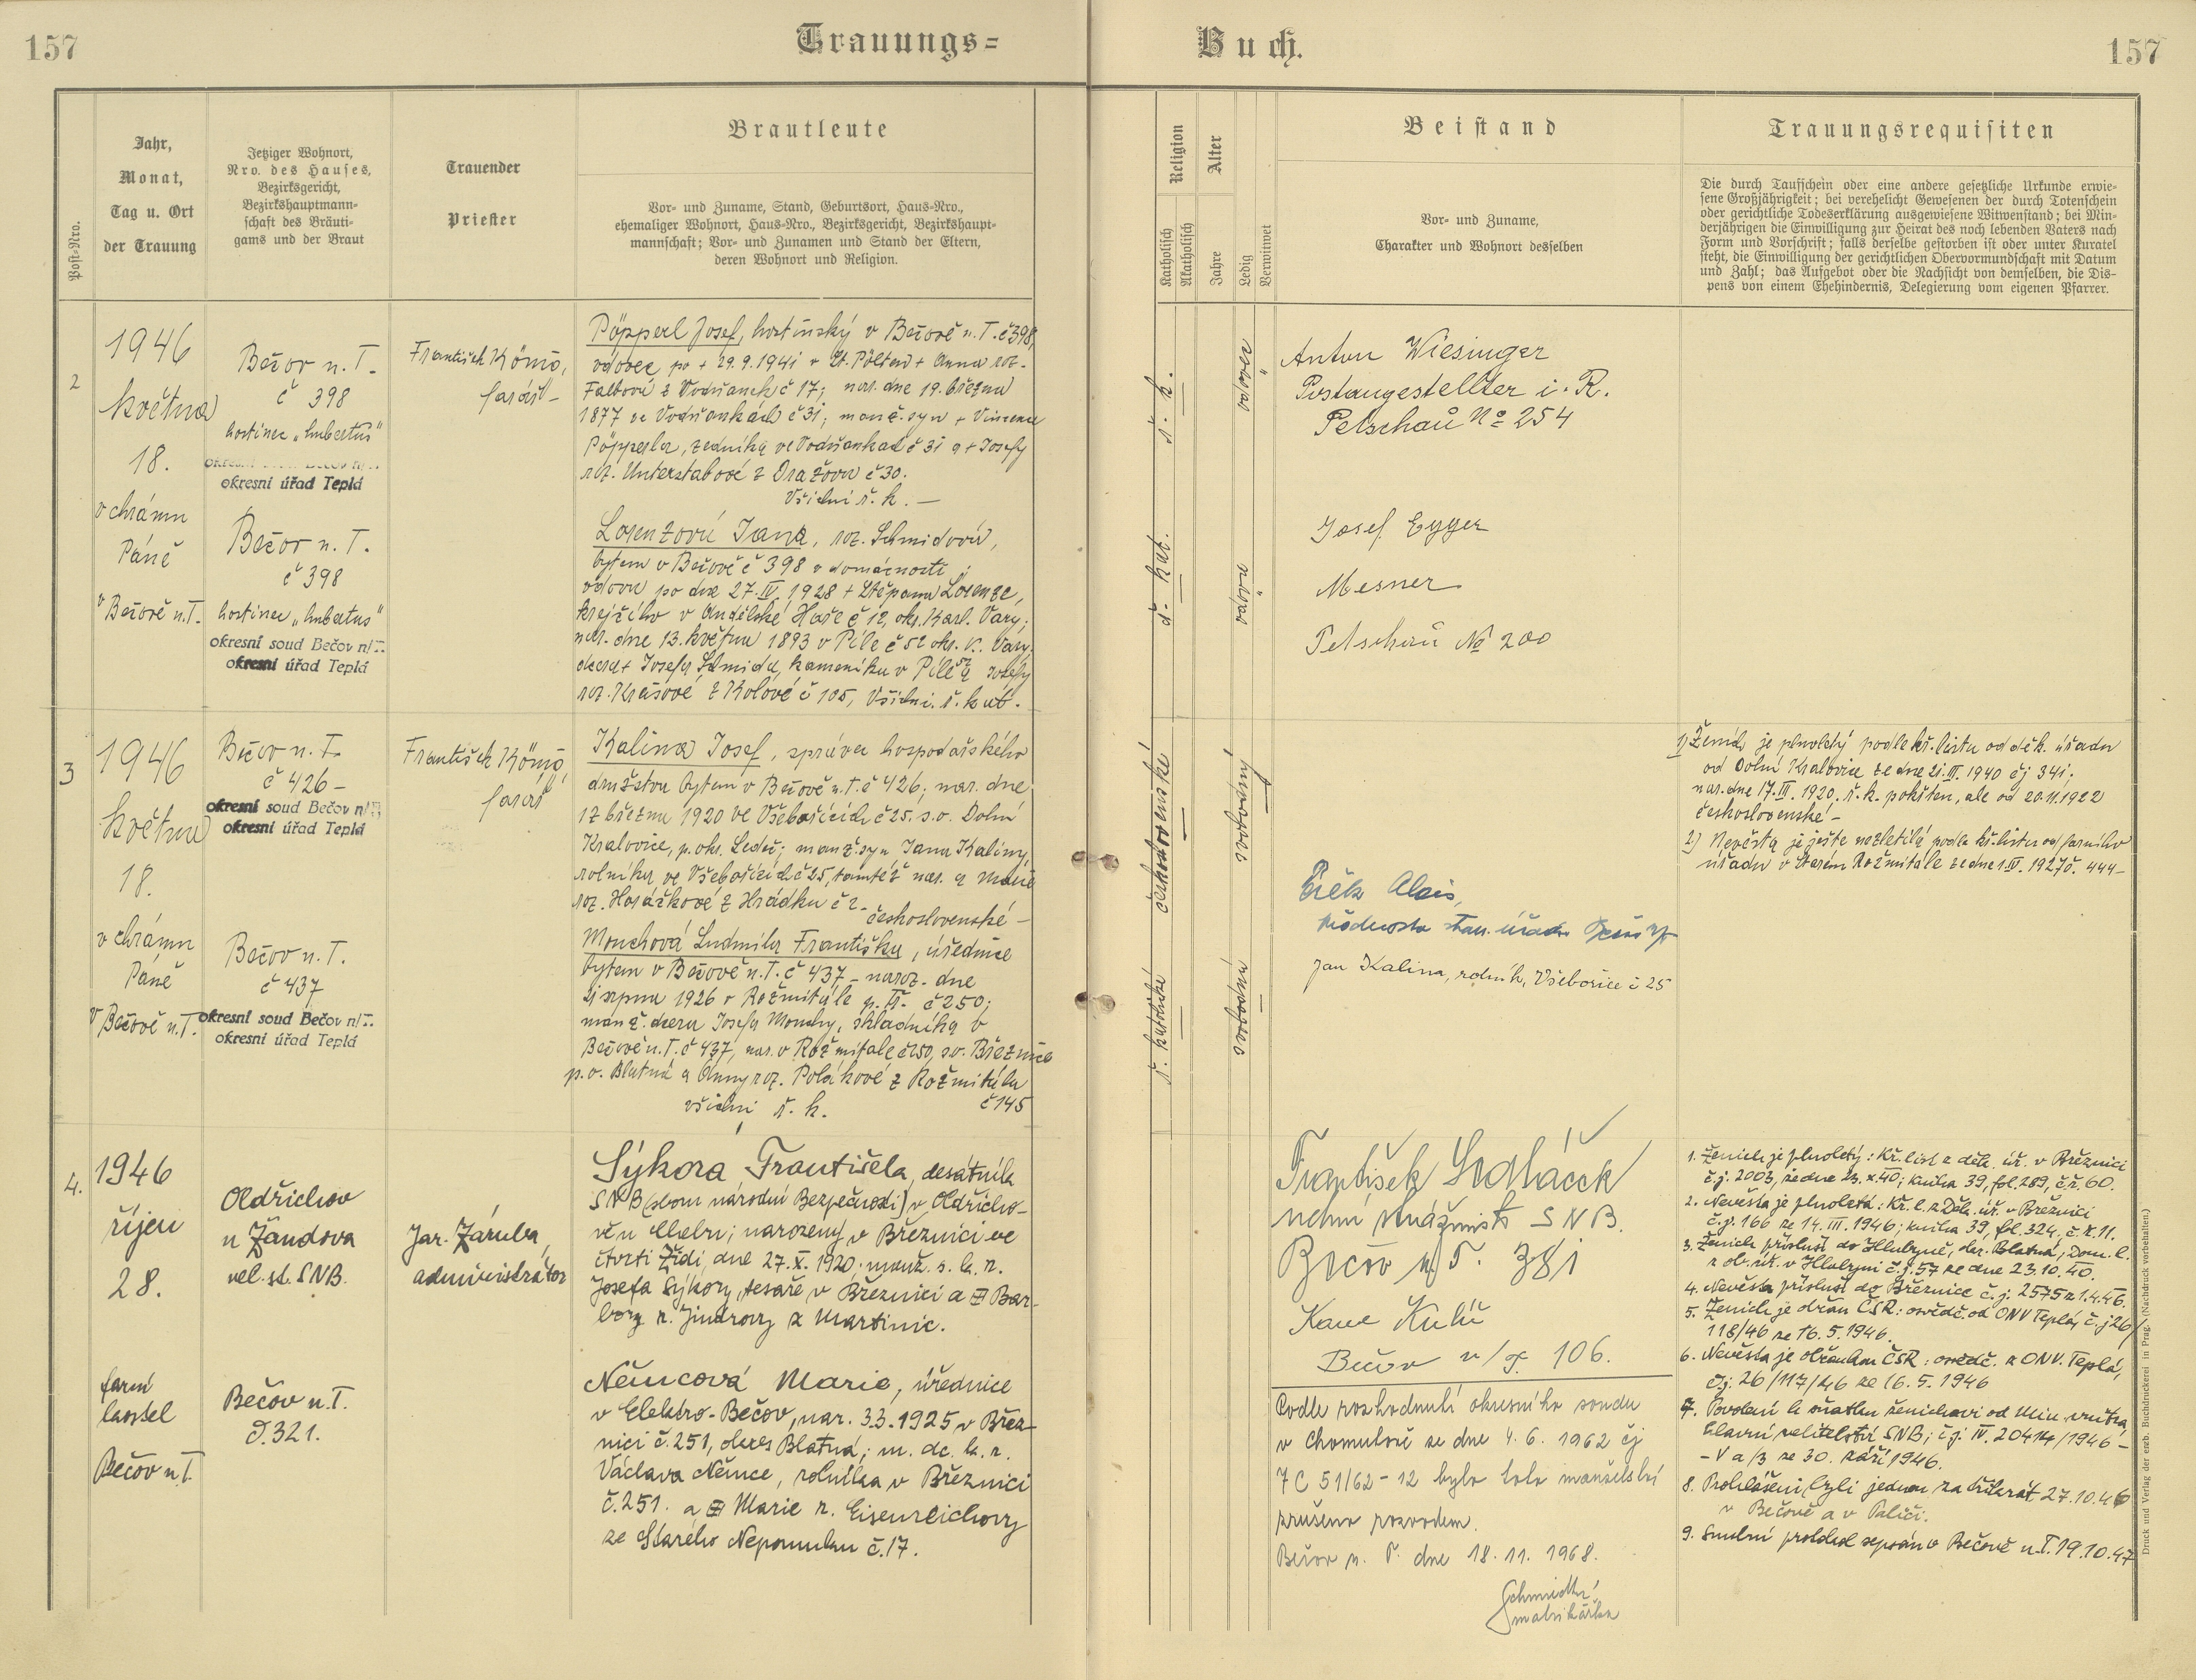 157
Trauungs=
Buch.
157
Post-Nro.
Jahr,
Monat,
Tag u. Ort
der Trauung
Jetziger Wohnort,
Nro. des Hauses,
Bezirksgericht,
Bezirkshauptmann-
schaft des Bräuti-
gams und der Braut
Trauender
Priester
Brautleute
Vor- und Zuname, Stand, Geburtsort, Haus-Nro.,
ehemaliger Wohnort, Haus-Nro., Bezirksgericht, Bezirkshaupt-
mannschaft; Vor- und Zunamen und Stand der Eltern,
deren Wohnort und Religion.
Religion
Katholisch
Akatholisch
Alter
Jahre
Ledig
Verwitwet
Beistand
Vor- und Zuname,
Charakter und Wohnort desselben
Trauungsrequisiten
Die durch Taufschein oder eine andere gesetzliche Urkunde erwie-
sene Großjährigkeit; bei verehelicht Gewesenen der durch Totenschein
oder gerichtliche Todeserklärung ausgewiesene Witwenstand; bei Min-
derjährigen die Einwilligung zur Heirat des noch lebenden Vaters nach
Form und Vorschrift; falls derselbe gestorben ist oder unter Kuratel
steht, die Einwilligung der gerichtlichen Obervormundschaft mit Datum
und Zahl; das Aufgebot oder die Nachsicht von demselben, die Dis-
pens von einem Ehehindernis, Delegierung vom eigenen Pfarrer.
2
1946
května
18.
v chrámu
Páně
v Bečově n.T.
Bečov n. T.
č 398
hostinec „hubertus“
okresní úřad Teplá
Bečov n. T.
č 398
hostinec „hubertus“
okresní soud Bečov n/T.
okresní úřad Teplá
František Kömö,
farář
Pöpperl Josef, hostinský v Bečově n.T. č 398,
vdovec po + 29.9.1941 v St. Pölten + Anna roz.
Falbové z Vodňanek č 17; nar. dne 19. března
1877 ve Vodňankách č 31; manž. syn + Vincence
Pöpperla, zedníka ve Vodňankách č 31 a + Josefy
roz. Unterstabové z Dražova č 30.
Všichni ř. k. —
Lorenzová Jana, roz. Schmidová,
bytem v Bečově č 398 v domácnosti;
vdova po dne 27. IV. 1928 + Štěpanu Lorenze,
krejčího v Andělské Hoře č 12, okr. Karl. Vary;
nar. dne 13. května 1893 v Pile č 52 okr. K. Vary,
dcera + Josefa Schmida, kameníka v Pile 52 a Josefy
roz. Krausové z Kolové č 105, Všichni ř. kat.
ř. k.
ř. kat.
vdovec
vdova
Anton Wiesinger
Postangestellter i. R.
Petschau No 254
Josef Egger
Mesner
Petschau No 200
3
1946
května
18.
v chrámu
Páně
v Bečově n.T.
Bečov n. T.
č 426 —
okresní soud Bečov n/T.
okresní úřad Teplá
Bečov n. T.
č 437
okresní soud Bečov n/T.
okresní úřad Teplá
František Kömö,
farář
Kalina Josef, správce hospodářského
družstva bytem v Bečově n.T. č 426; nar. dne
17 března 1920 ve Všebořicích č 25. s.o. Dolní
Kralovice, p. okr. Ledeč; manž. syn Jana Kaliny,
rolníka ve Všebořicích č 25, tamtéž nar. a Marie
roz. Horáčkové z Hrádku č 2. československé —
Mouchová Ludmila Františka, úřednice
bytem v Bečově n.T. č 437 — naroz. dne
21 srpna 1926 v Rožmitále p. Tř. č 250;
manž. dcera Josefa Mouchy, skladníka v
Bečově n.T. č 437, nar. v Rožmitále č 250, s.o. Březnice
p.o. Blatná a Anny roz. Polákové z Rožmitálu
č 145
všichni ř. k.
československé
ř. katolické
svobodný
svobodná
Alois,
Jan Kalina, rolník, Všebořice č 25
1) Ženich je plnoletý podle kř. listu od děk. úřadu
od Dolní Kralovice ze dne 21. III. 1940 čj 341.
nar. dne 17. III. 1920, ř. k. pokřten, ale od 20.11.1922
československé —
2) Nevěsta je ještě nezletilá podle kř. listu od farního
úřadu v Starém Rožmitále ze dne 1. IV. 1927 č. 444 —
4.
1946
říjen
28.
farní
kostel
Bečov n.T.
Oldřichov
u Žandova
vel. st. SNB.
Bečov n. T.
č. 321.
Jar. Záruba,
administrátor
Sýkora Františka, desátník
SNB (sbor národní Bezpečnosti) v Oldřicho-
vě u Chebu; narozený v Březnici ve
čtvrti Židi, dne 27. X. 1920. manž. s. k. ř.
Josefa Sýkory, tesaře v Březnici a Bar-
bory r. Jindrovy z Martinic.
Němcová Marie, úřednice
v Elektro-Bečov, nar. 3.3.1925 v Břez-
nici č. 251, okres Blatná; m. dc. k. ř.
Václava Němce, rolníka v Březnici
č. 251. a Marie r. Eisenreichovy
ze Starého Nepomuku č. 17.
František Sedláček
vrchní strážmistr SNB.
Bečov n/T. 381
Bečov n/T. 106.
Podle rozhodnutí okresního soudu
v Chomutově ze dne 4. 6. 1962 čj
7 C 51/62 - 12 bylo toto manželství
zrušeno rozvodem.
Bečov n. T. dne 18. 11. 1968.
Schmidtká
matrikářka
1. Ženich je plnoletý: Kř. list z děk. úř. v Březnici
č.j. 2003, ze dne 23. X. 40; kniha 39, fol. 289, č.ř. 60.
2. Nevěsta je plnoletá: Kř. l. z Děk. úř. v Březnici
č.j. 166 ze 14. III. 1946; kniha 39, fol. 324, č. ř. 11.
3. Ženich přísluší do Hlubyně, okr. Blatná; Dom. l.
z ob. úř. v Hlubyni č.j. 57 ze dne 23.10.40.
4. Nevěsta přísluší do Březnice č.j. 2575 z 1.4.46.
5. Ženich je občan ČSR: osvědč. od ONV Teplá, č.j 26/
118/46 ze 16. 5. 1946.
6. Nevěsta je občankou ČSR: osvědč. z ONV. Teplá,
čj. 26/117/46 ze 16. 5. 1946
7. Povolení k sňatku ženichovi od Min. vnitra,
hlavní velitelství SNB; čj. IV. 20414/1946 —
— V a/3 ze 30. září 1946.
8. Prohlášeni byli jednou za třikrát, 27.10.46
v Bečově a v Palíči.
9. Snubní protokol sepsán v Bečově n.T. 19.10.47
Druck und Verlag der erzb. Buchdruckerei in Prag. (Nachdruck vorbehalten.)